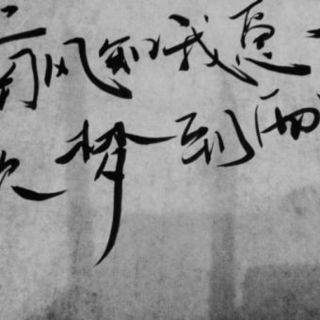 南风知我意
吹梦到西